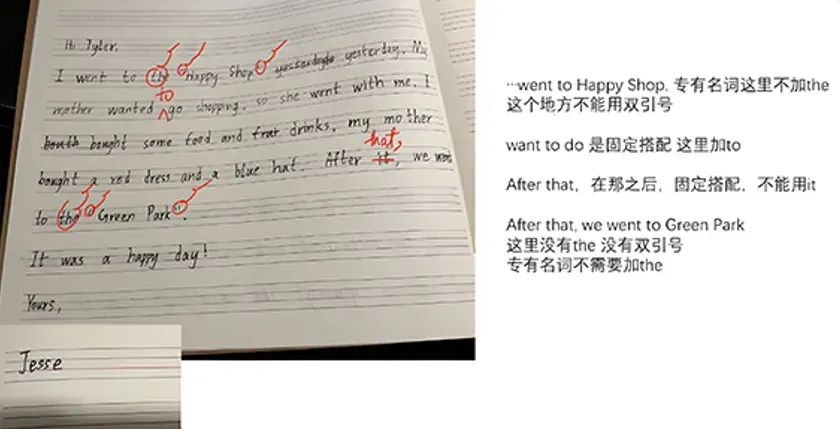 Hi Tyler.
I went to the "Happy Shop" yesterday. My
to
mother wanted go shopping, so she went with me. I
bought some food and drinks, my mother
hat,
bought a red dress and a blue hat. After it, we went
to the "Green Park".
It was a happy day!
Yours,
Jesse
…went to Happy Shop. 专有名词这里不加the
这个地方不能用双引号
want to do 是固定搭配 这里加to
After that，在那之后，固定搭配，不能用it
After that, we went to Green Park
这里没有the 没有双引号
专有名词不需要加the